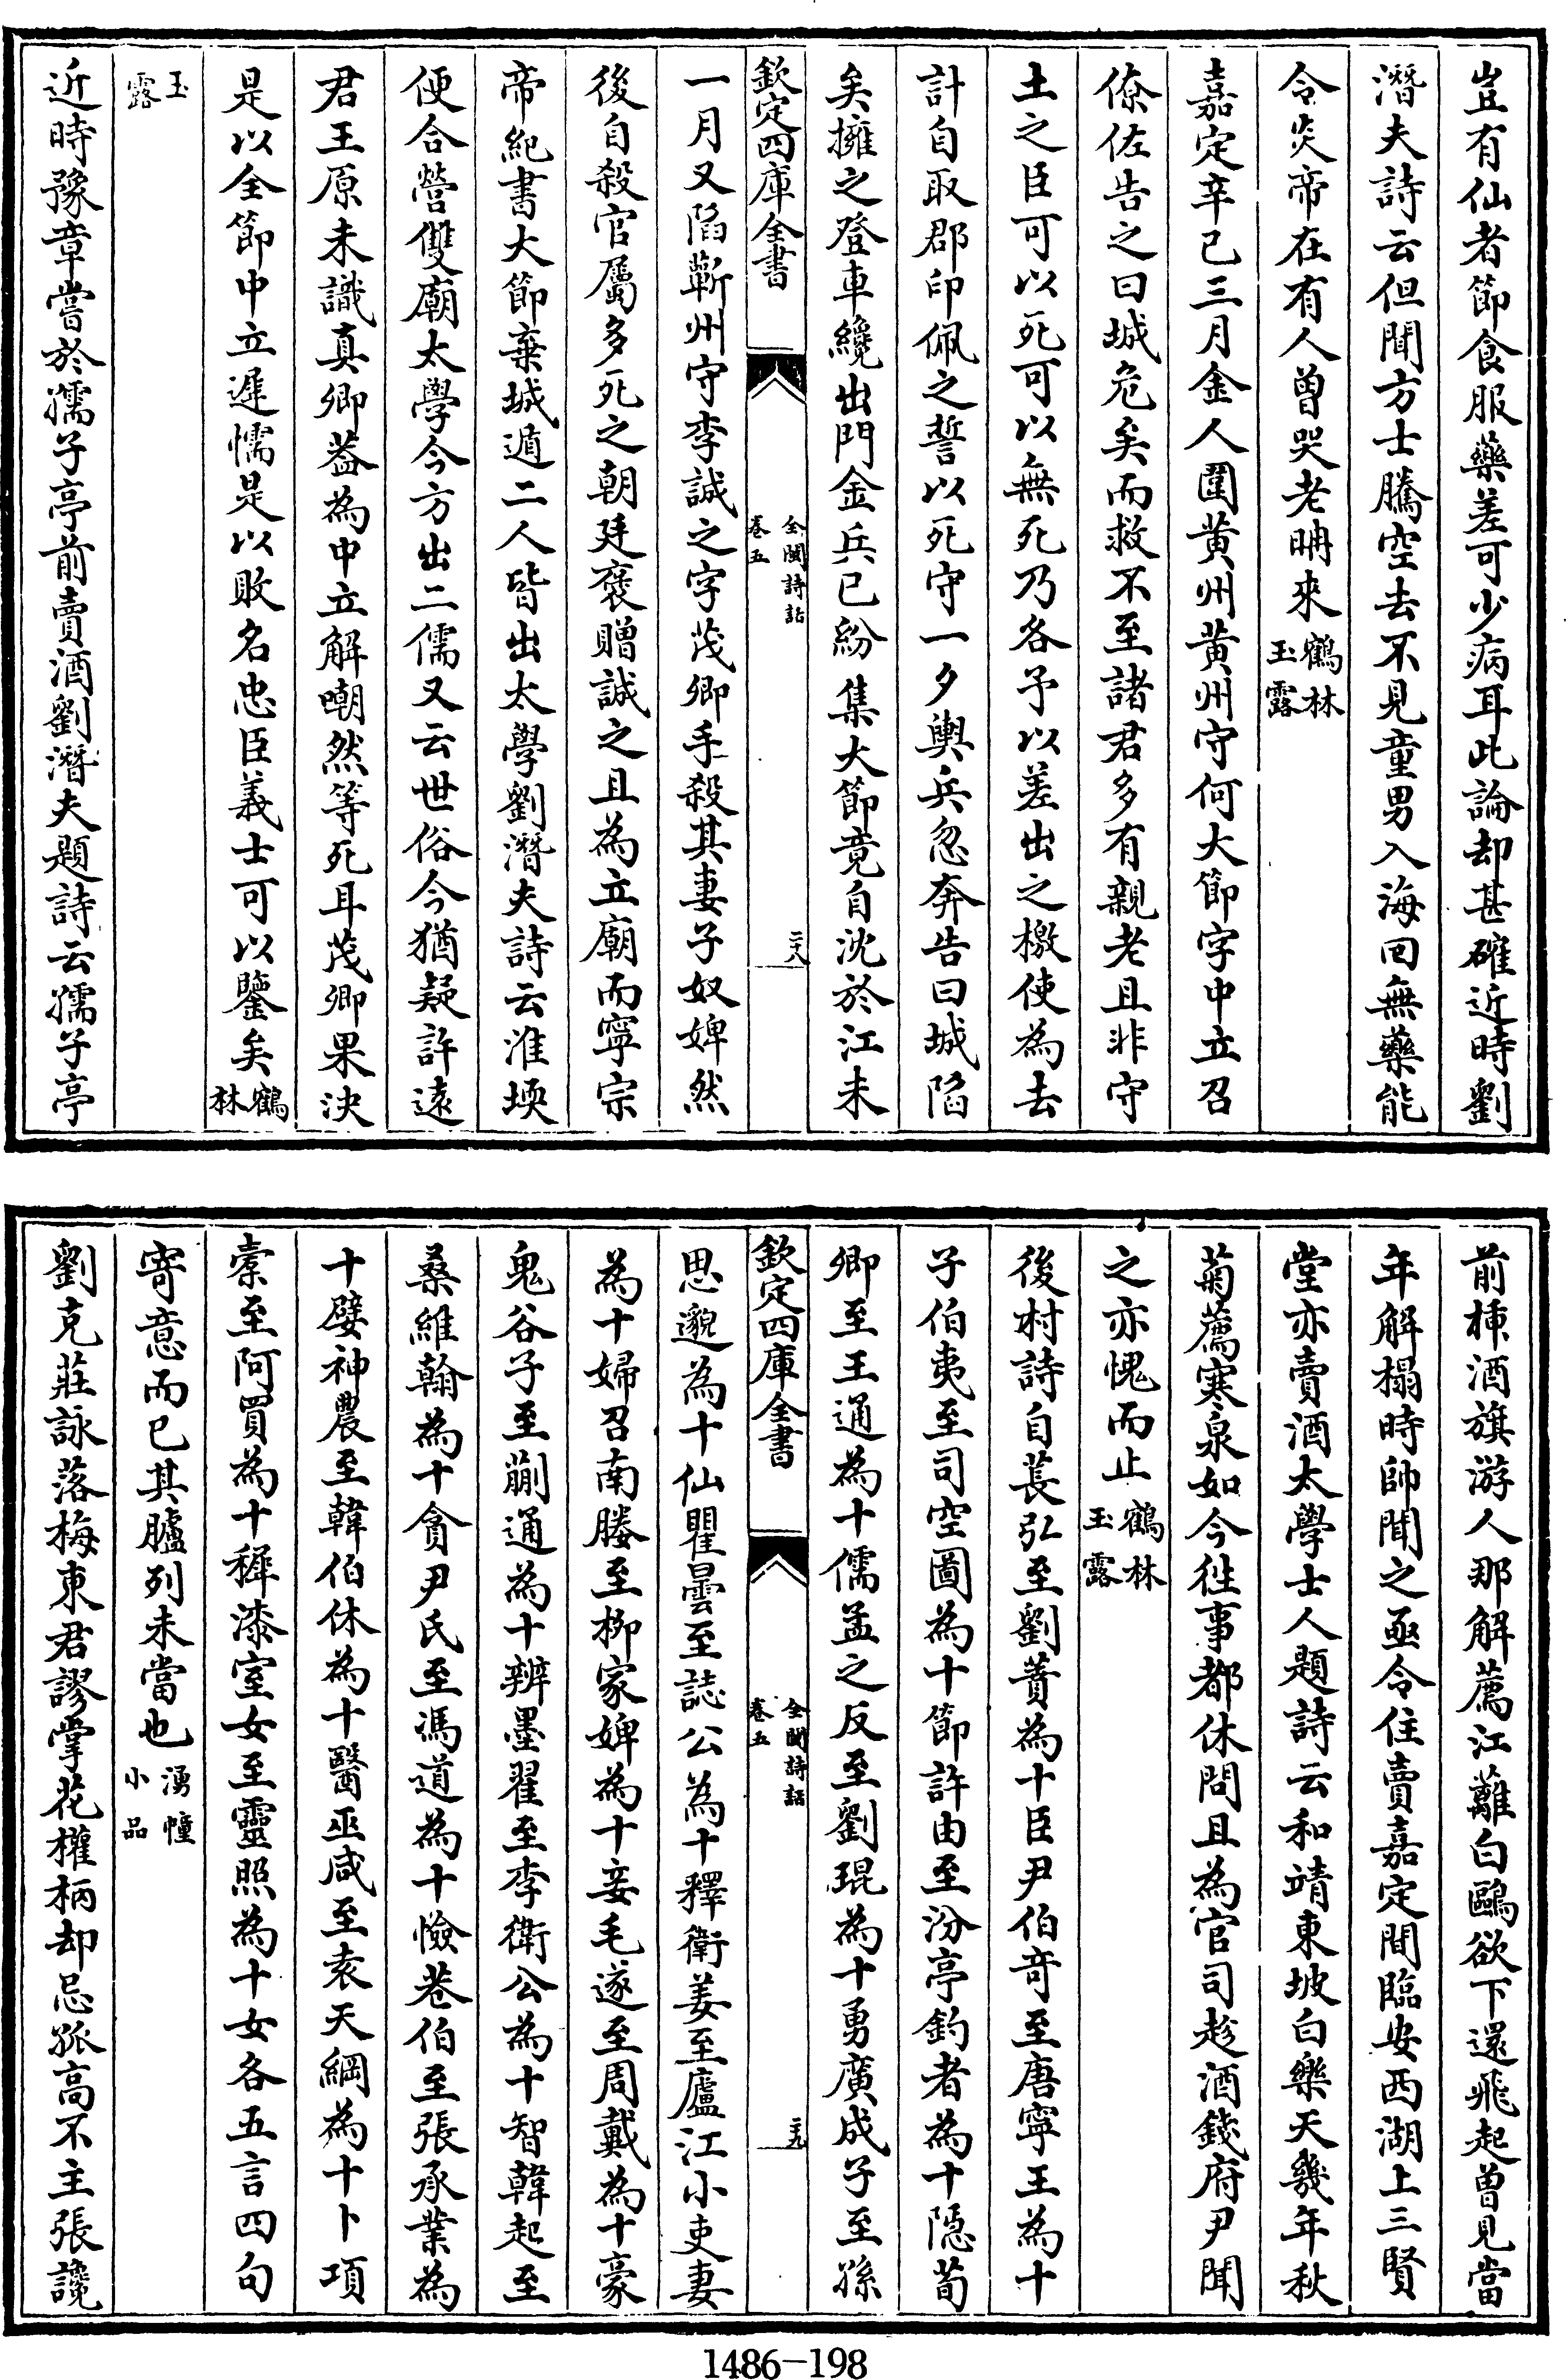 豈有仙者節食服藥差可少病耳此論却甚確近時劉
潛夫詩云但聞方士騰空去不見童男入海回無藥能
令炎帝在有人曾哭老聃來鶴林玉露
嘉定辛巳三月金人圍黄州黄州守何大節字中立召
僚佐告之曰城危矣而救不至諸君多有親老且非守
土之臣可以死可以無死乃各予以差出之檄使為去
計自取郡印佩之誓以死守一夕輿兵忽奔告曰城陷
矣擁之登車纔出門金兵已紛集大節竟自沈於江未
欽定四庫全書
全閩詩話
卷五
二十八
一月又陷蘄州守李誠之字茂卿手殺其妻子奴婢然
後自殺官屬多死之朝廷褒贈誠之且為立廟而寧宗
帝紀書大節棄城遁二人皆出太學劉潛夫詩云淮堧
便合營雙廟太學今方出二儒又云世俗今猶疑許遠
君王原未識真卿葢為中立解嘲然等死耳茂卿果決
是以全節中立遲懦是以敗名忠臣義士可以鑒矣鶴林
玉露
近時豫章嘗於孺子亭前賣酒劉潛夫題詩云孺子亭
前揷酒旗游人那解薦江蘺白鷗欲下還飛起曽見當
年解榻時帥聞之亟令住賣嘉定間臨安西湖上三賢
堂亦賣酒太學士人題詩云和靖東坡白樂天幾年秋
菊薦寒泉如今徃事都休問且為官司趁酒錢府尹聞
之亦愧而止鶴林玉露
後村詩自萇弘至劉蕡為十臣尹伯奇至唐寧王為十
子伯夷至司空圖為十節許由至汾亭釣者為十隱荀
卿至王通為十儒孟之反至劉琨為十勇廣成子至孫
欽定四庫全書
全閩詩話
卷五
二十九
思邈為十仙瞿曇至誌公為十釋衛姜至廬江小吏妻
為十婦召南媵至柳家婢為十妾毛遂至周戴為十豪
鬼谷子至蒯通為十辨墨翟至李衛公為十智韓起至
桑維翰為十貪尹氏至馮道為十憸巷伯至張承業為
十嬖神農至韓伯休為十醫巫咸至袁天綱為十卜項
槖至阿買為十穉漆室女至靈照為十女各五言四句
寄意而已其臚列未當也湧幢小品
劉克莊詠落梅東君謬掌花權柄却忌孤高不主張讒
1486-198